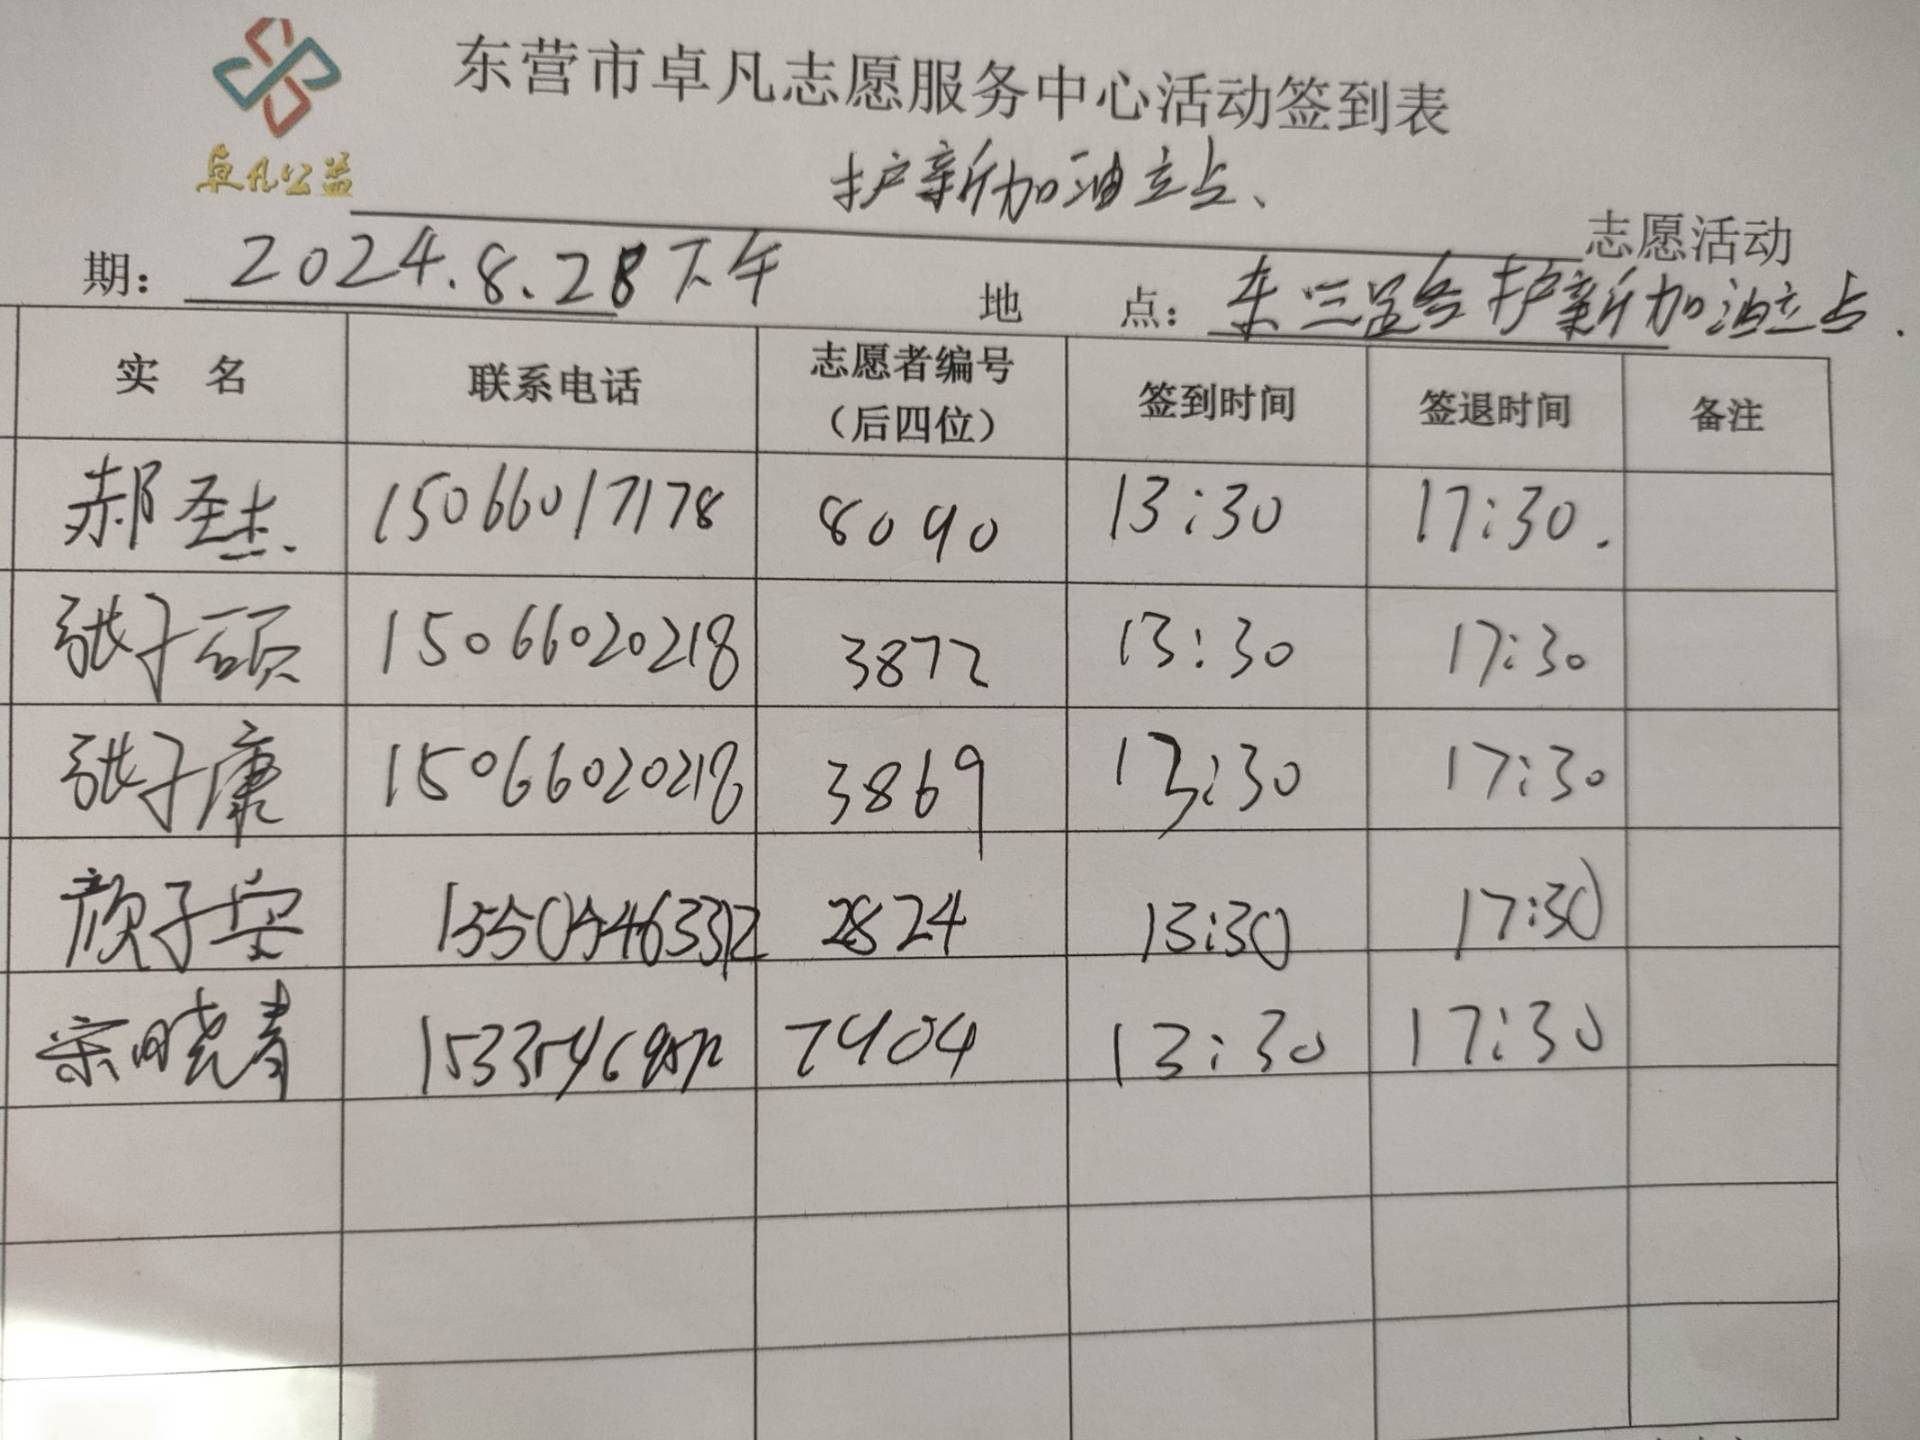 东营市卓凡志愿服务中心活动签到表
卓凡公益
护新加油立占、
志愿活动
期： 2024.8.28下午 地 点： 东三路护新加油立占.
实 名 联系电话 志愿者编号（后四位） 签到时间 签退时间 备注
郝圣杰. 15066017178 8090 13:30 17:30.
张子硕 15066020218 3872 13:30 17:30
张子康 15066020218 3869 13:30 17:30
颜子安 2824 13:30 17:30
宋晓青 7404 13:30 17:30